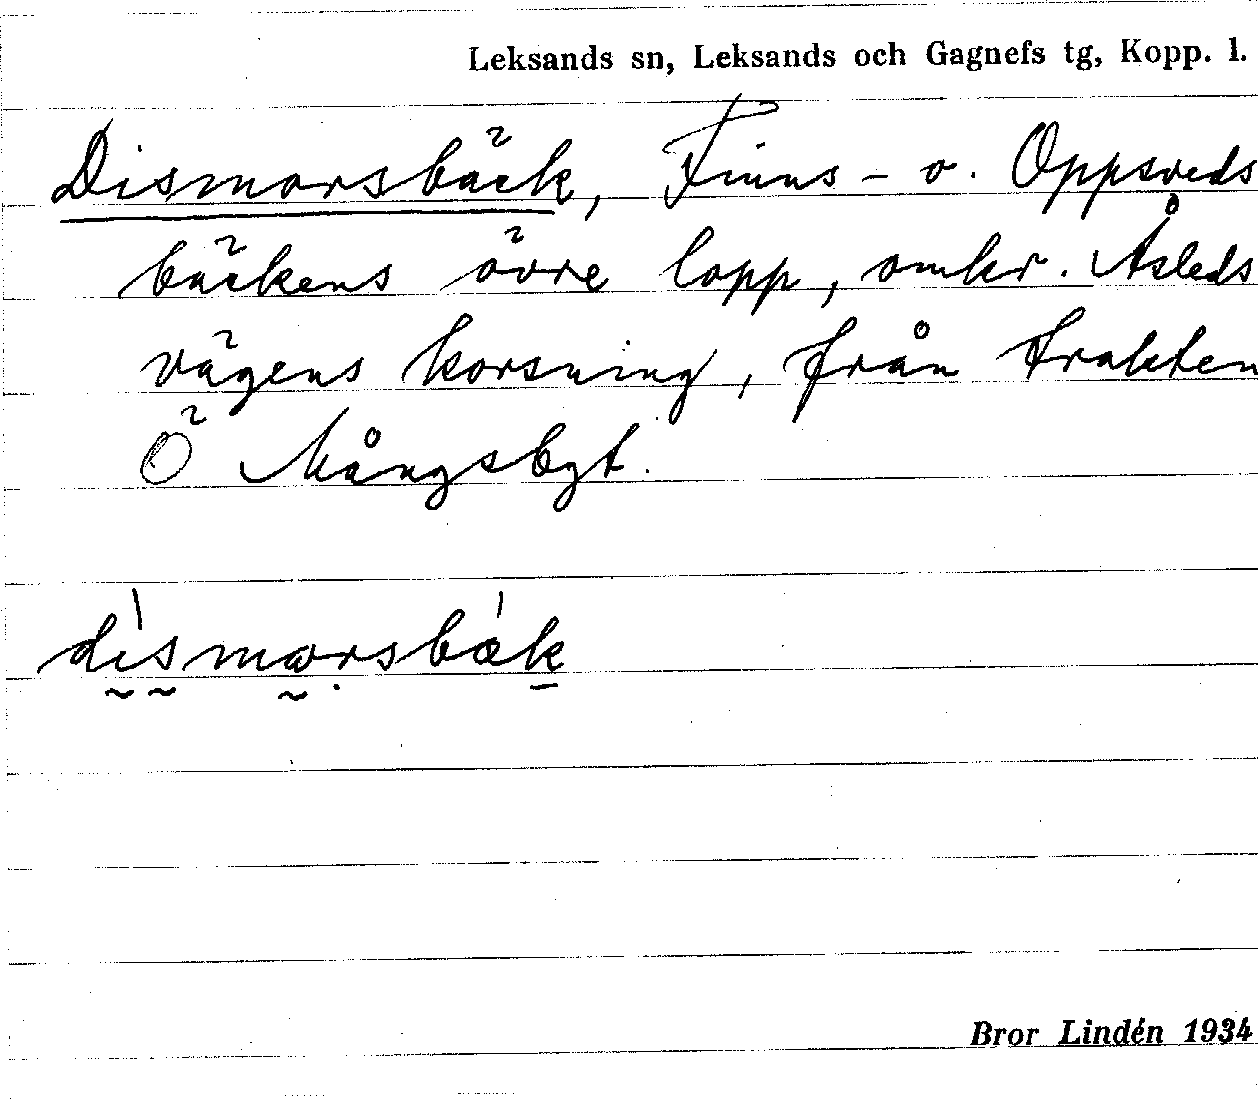 Leksands sn, Leksands och Gagnefs tg, Kopp. l.
Dismorsbäck, Finns- o. Oppsveds
bäckens övre lopp, omkr. Åsleds
vägens korsning, från trakten
Ö Mångsbyt.
dismorsbæk
Bror Lindén 1934